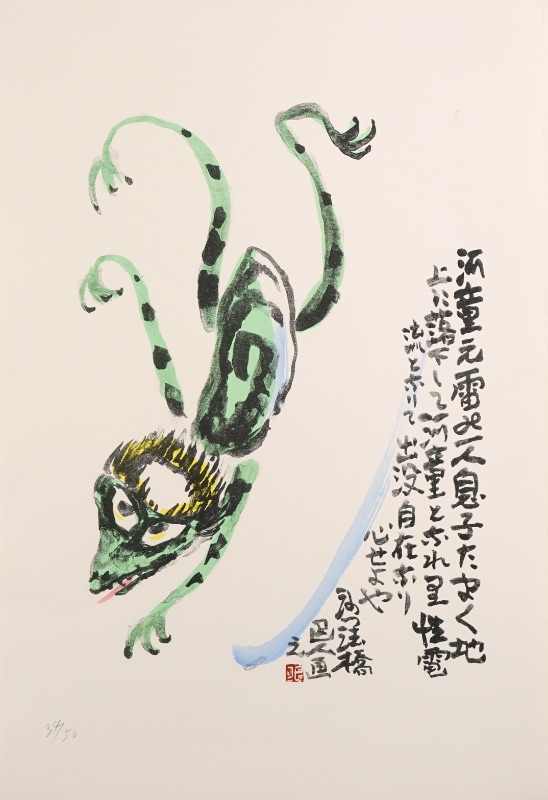 河童元雷の一人息子たまく地
上に落下して河童となれり 性電
流となりて出没自在なり
心せよや
橋
巴人画
之
34/50